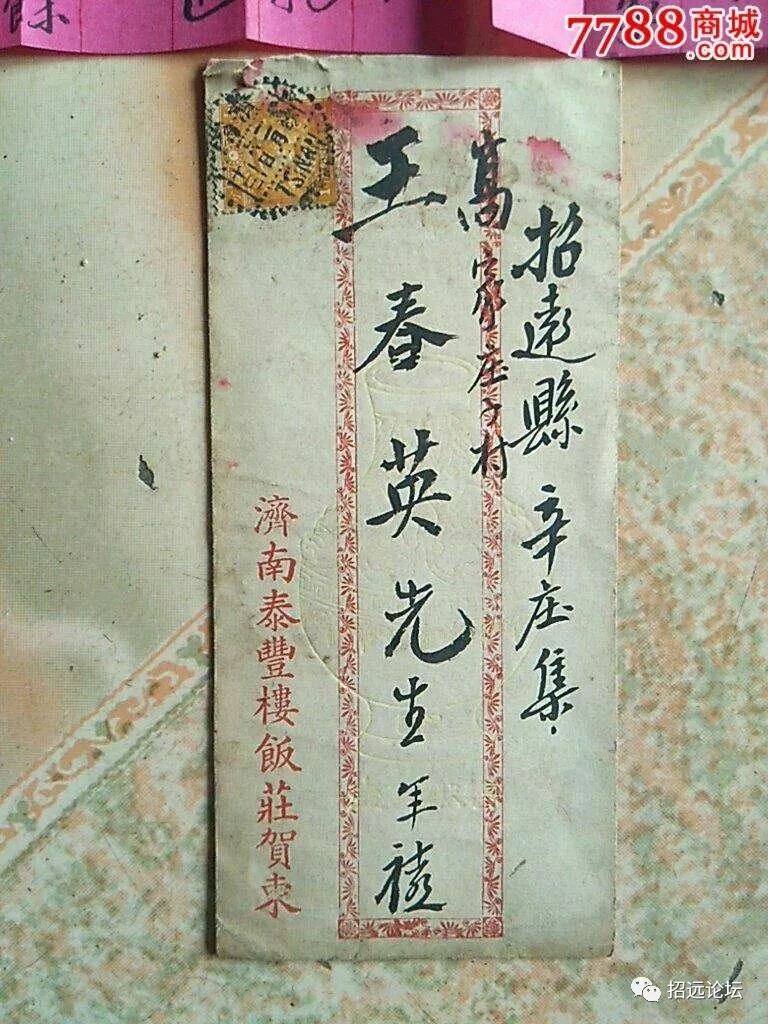 7788商城
.com
招遠縣辛庄集
高家庄子村
王春英先生年禧
濟南泰豐樓飯莊賀柬
TSINAN
招远论坛